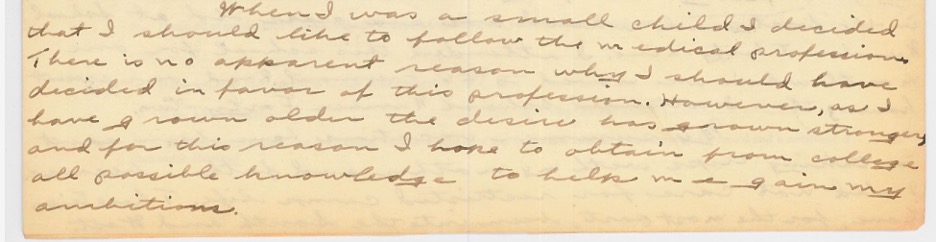 When I was a small child I decided
that I should like to follow the medical profession.
There is no apparent reason why I should have
decided in favor of this profession. However, as I
have grown older the desire has grown stronger,
and for this reason I hope to obtain from college
all possible knowledge to help me gain my
ambitions.